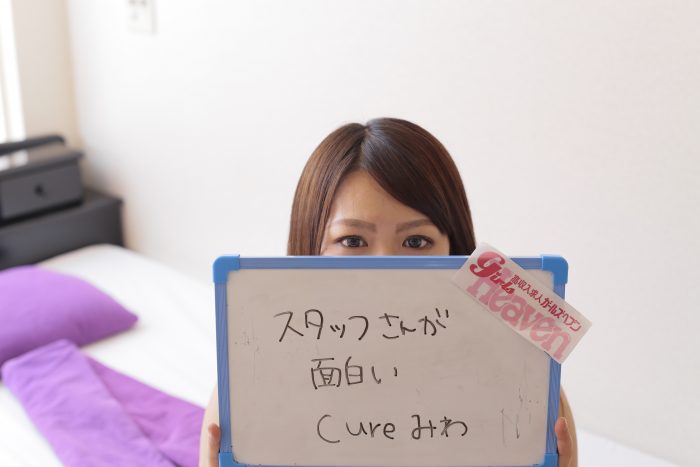 スタッフさんが
面白い
Cureみわ
girls
高収入求人ガールズヘブン
Heaven